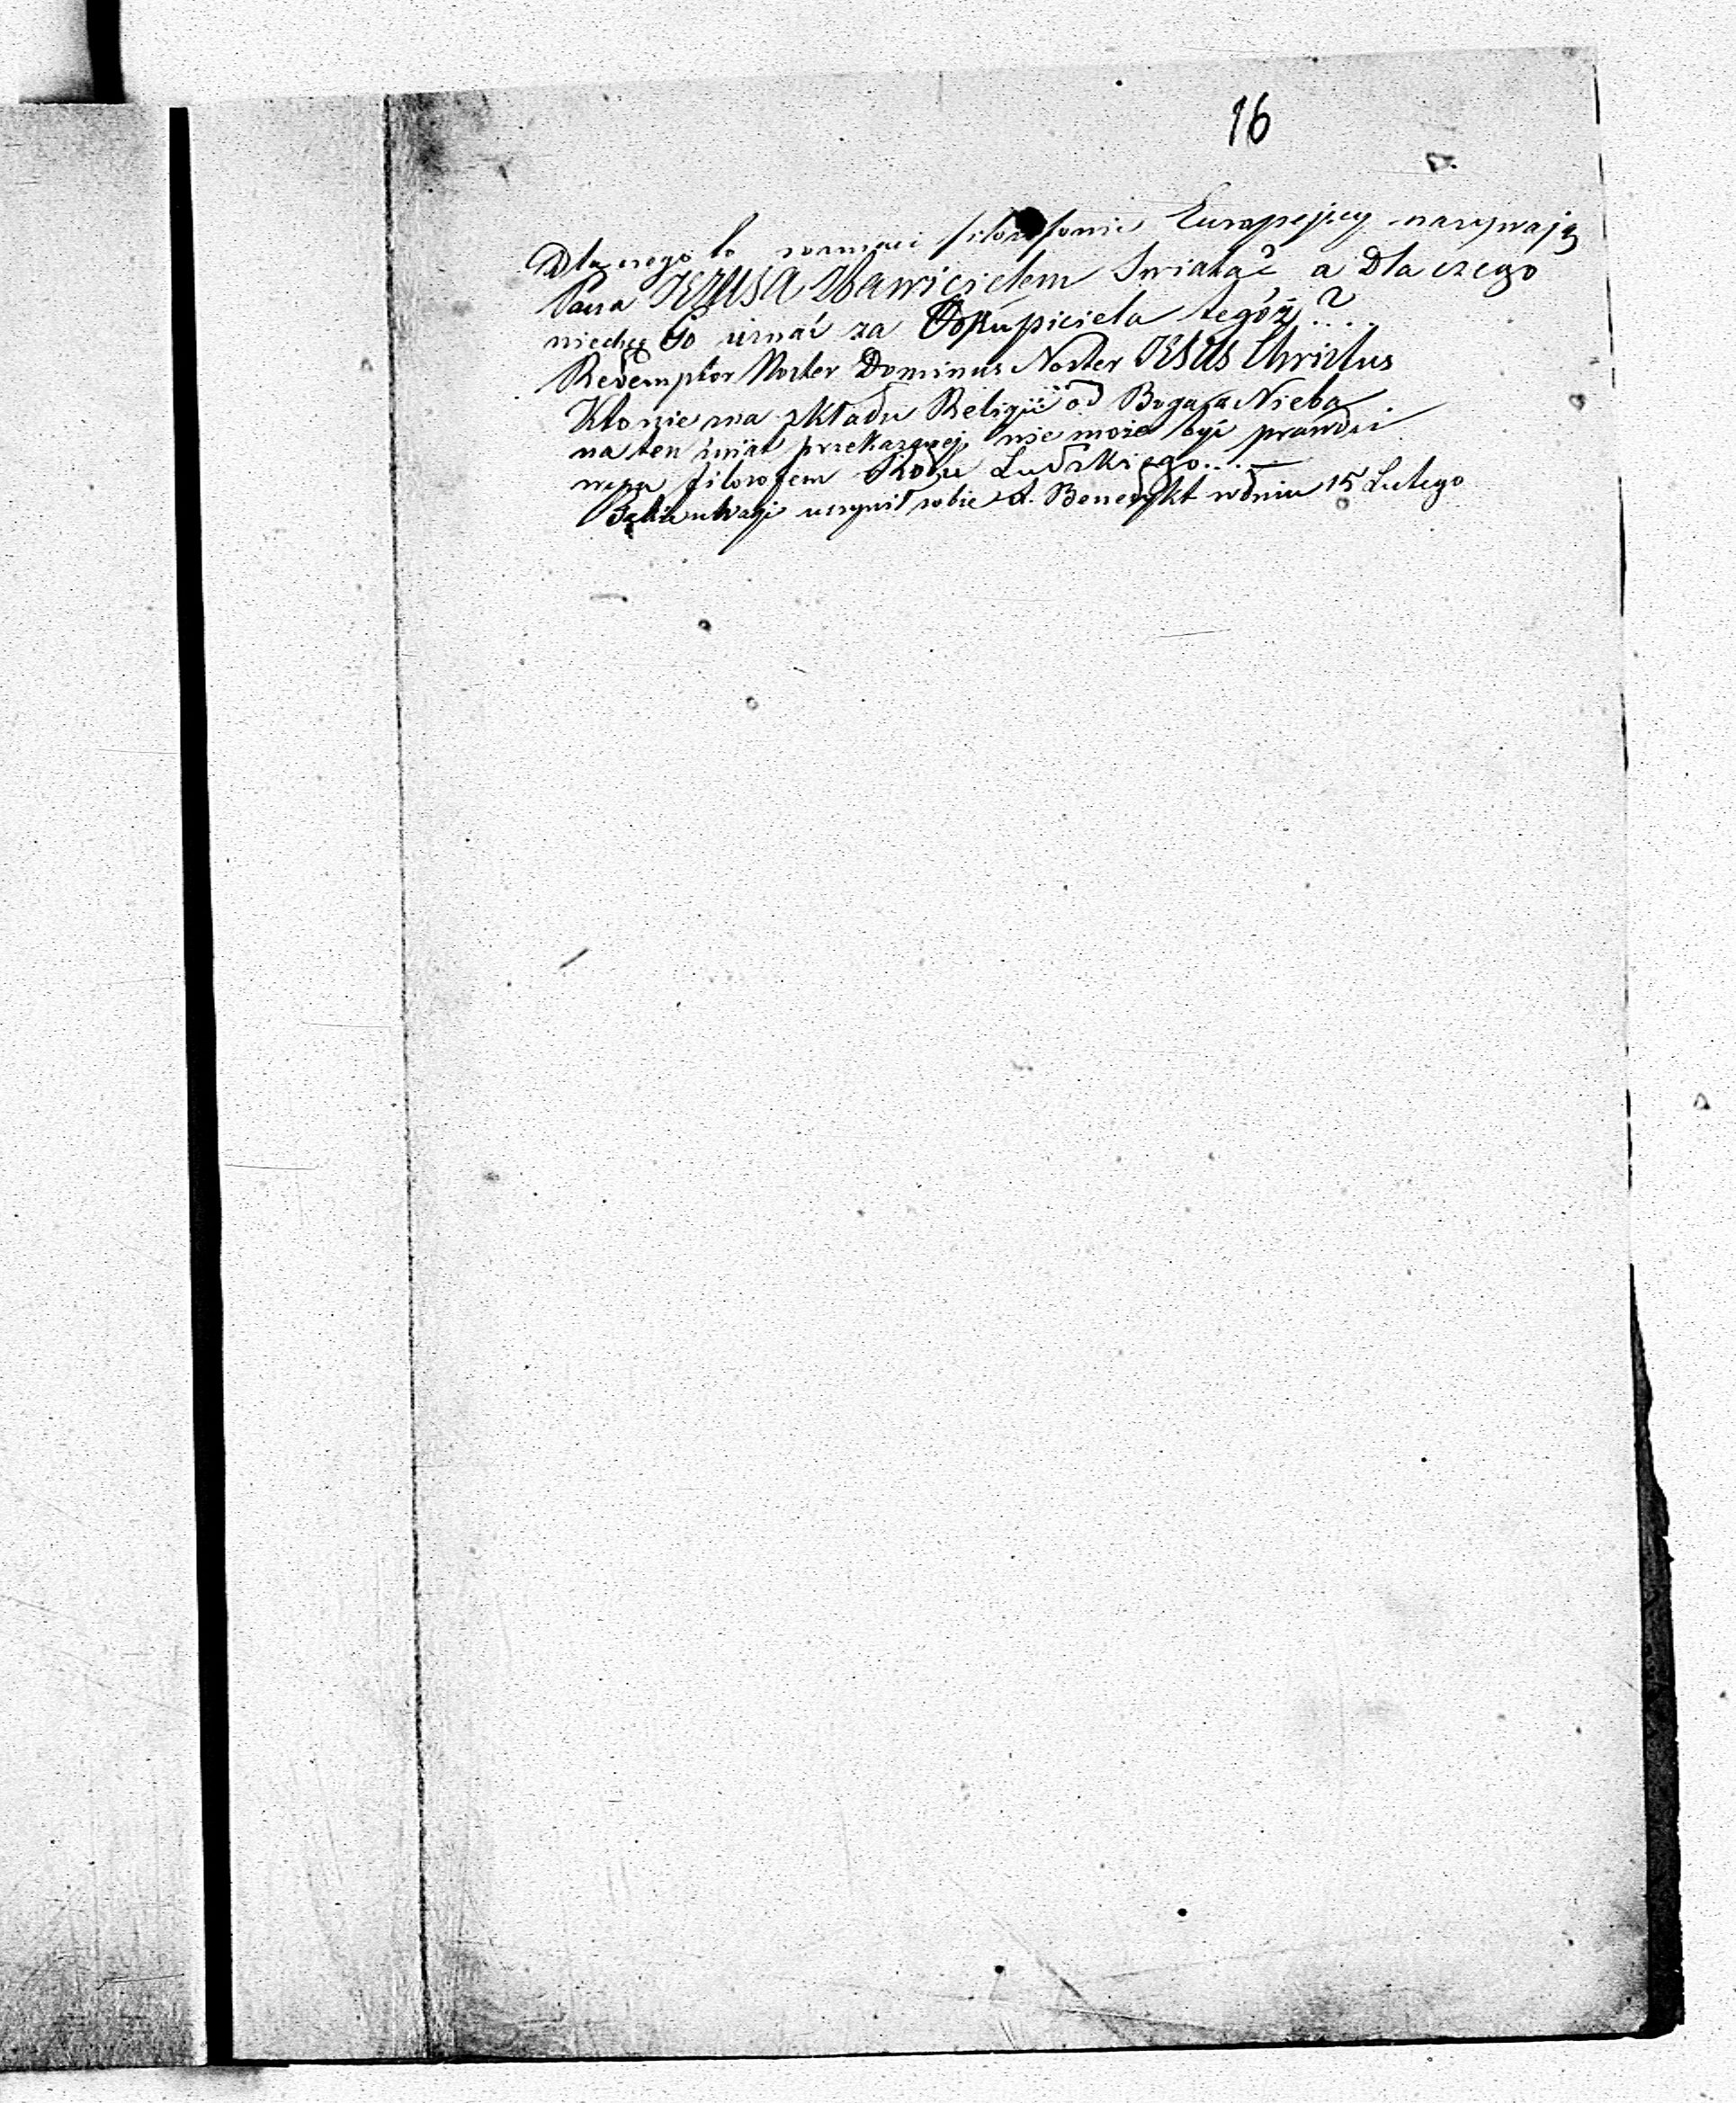 16
Dlaczego to rozmaici filozofowie Europejscy nazywają
Pana JEZUSA Zbawicielem Swiata? a Dla czego
niechcą Go uznać za Odkupiciela tegóż?...
Redemptor Noster Dominus Noster JESUS Christus
Kto nie zna składu Religii od Boga z Nieba
na ten świat przekazanej, nie może być prawdzi
wym filozofem Rodu Ludzkiego...—
uczynił sobie X. Benedykt w dniu 15 Lutego